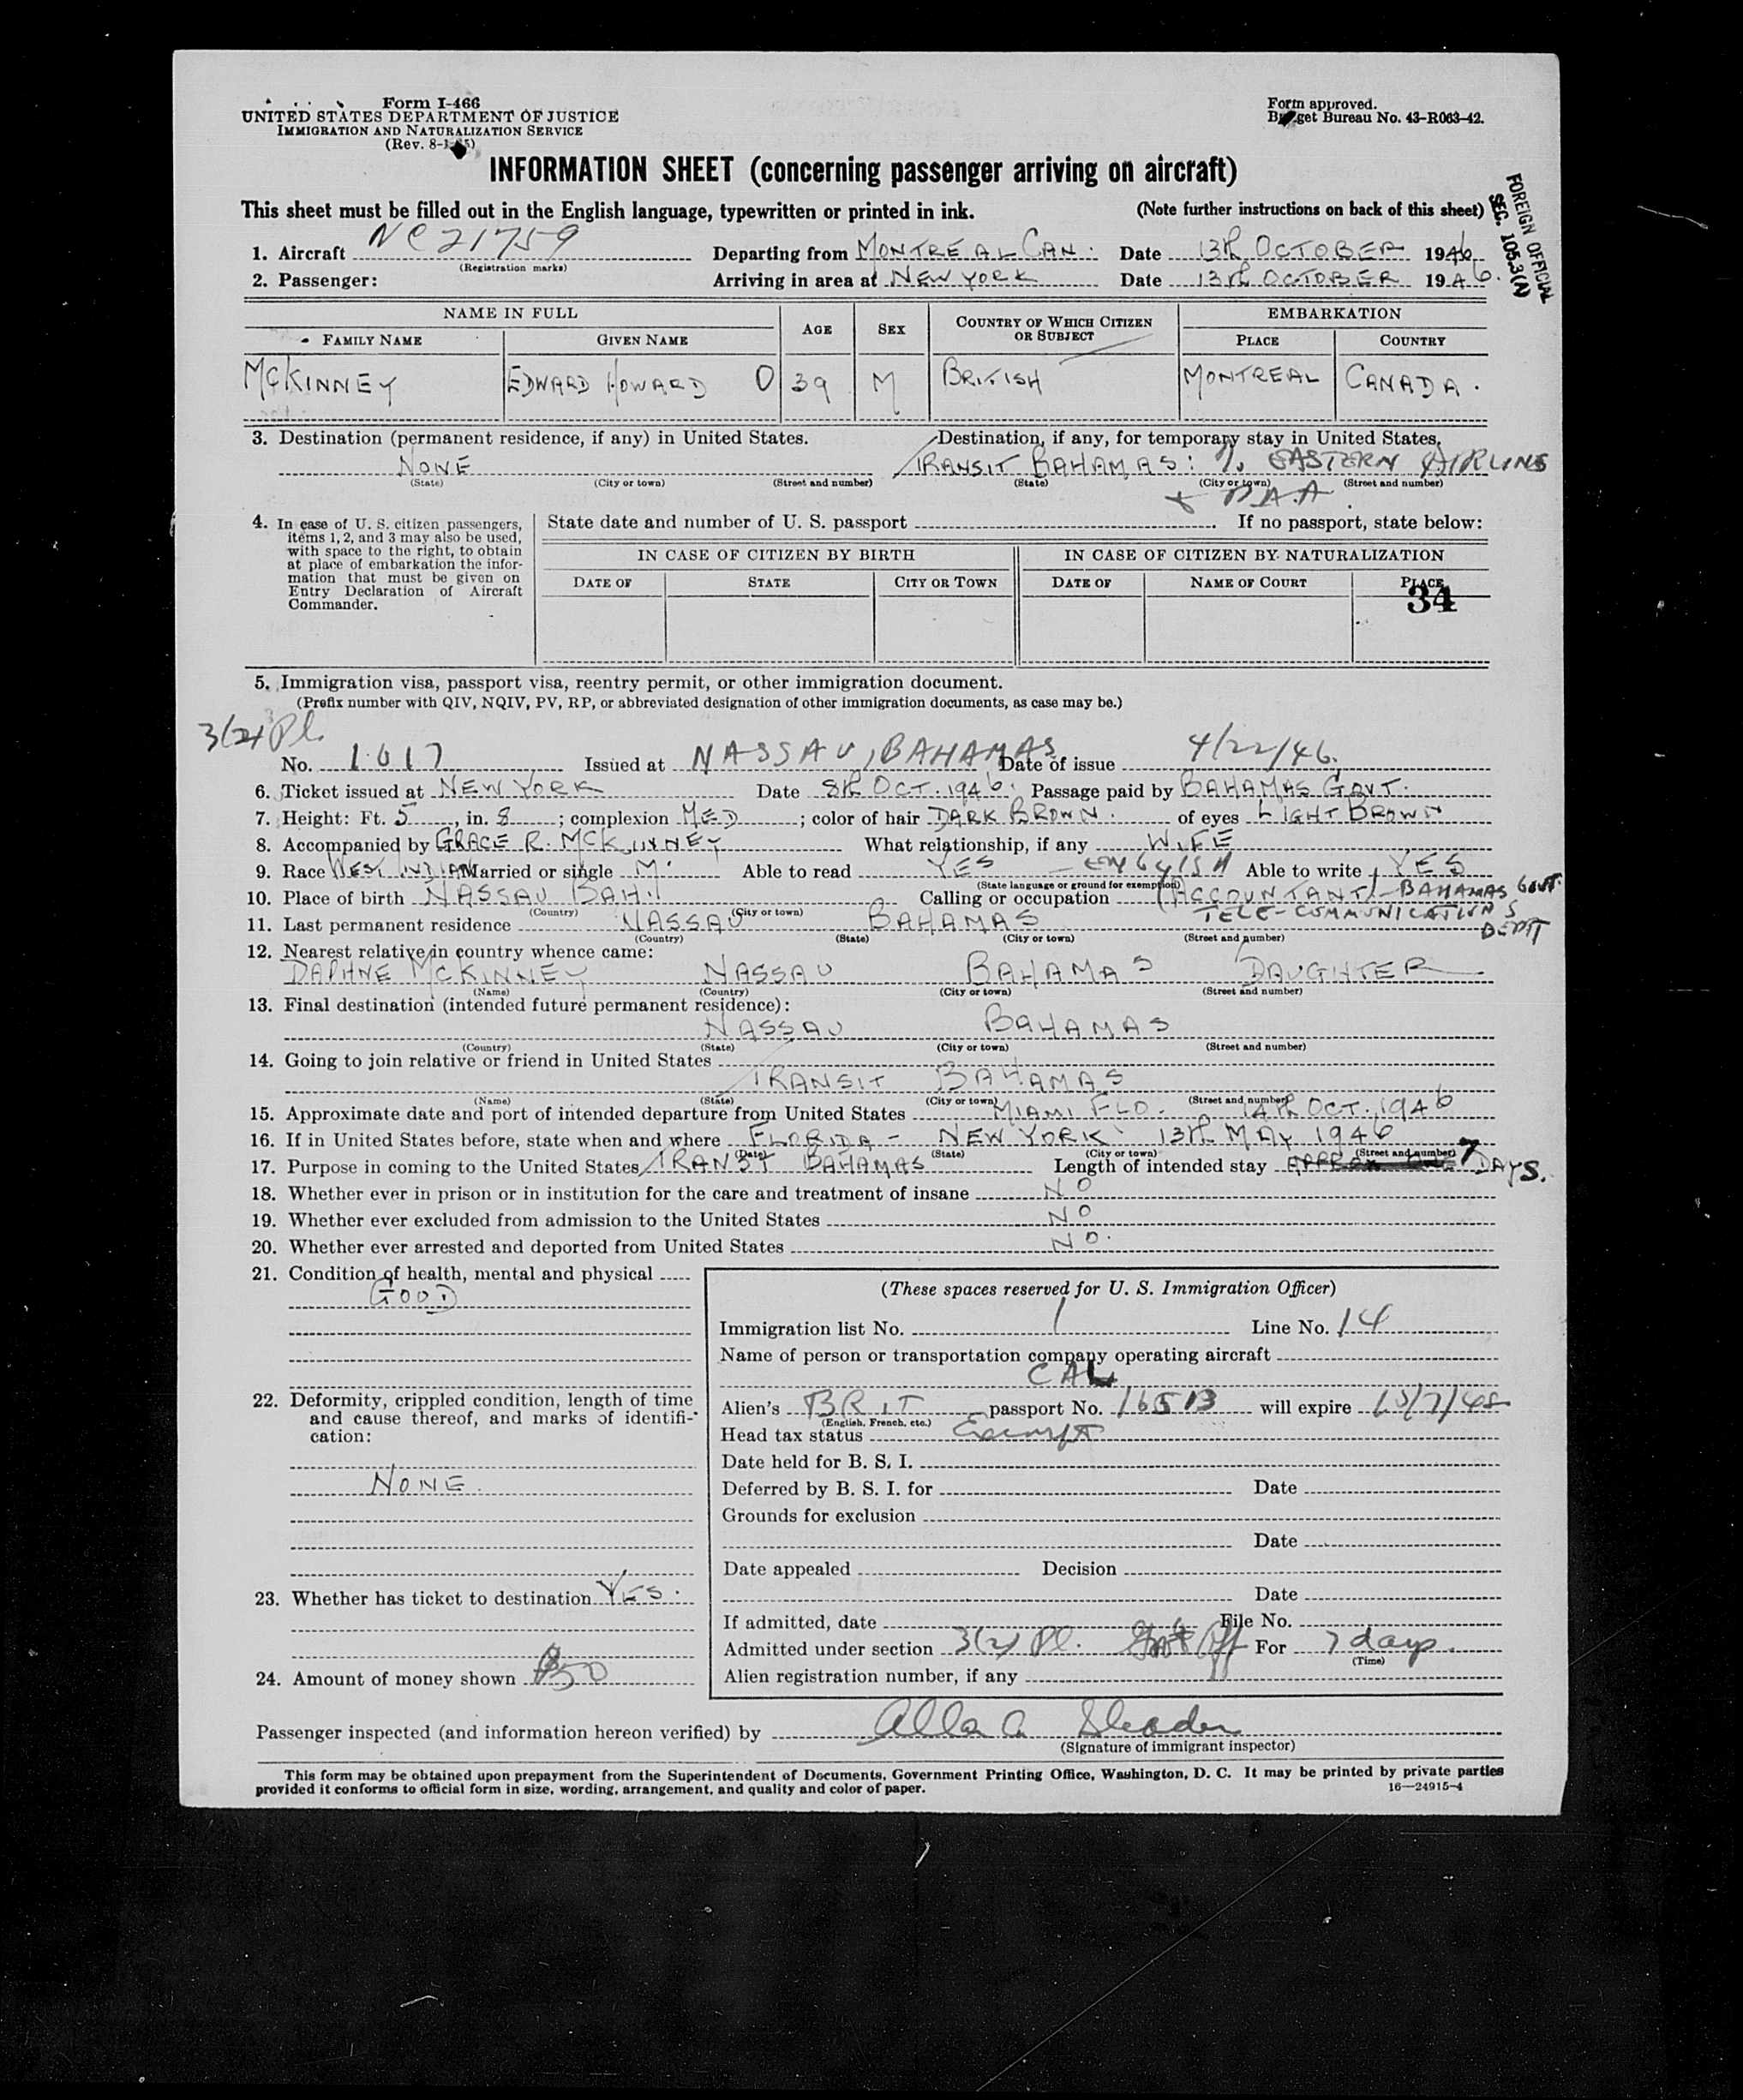 Form I-466
UNITED STATES DEPARTMENT OF JUSTICE
IMMIGRATION AND NATURALIZATION SERVICE
(Rev. 8-1-45)
Form approved.
Budget Bureau No. 43-R063-42.
INFORMATION SHEET (concerning passenger arriving on aircraft)
This sheet must be filled out in the English language, typewritten or printed in ink. (Note further instructions on back of this sheet)
FOREIGN OFFICIAL
SEC. 105.3(A)
1. Aircraft NC21759 Departing from MONTREAL CAN. Date 13th OCTOBER 1946
(Registration marks)
2. Passenger: Arriving in area at NEW YORK Date 13th OCTOBER 1946.
NAME IN FULL AGE SEX COUNTRY OF WHICH CITIZEN OR SUBJECT EMBARKATION
FAMILY NAME GIVEN NAME PLACE COUNTRY
MCKINNEY EDWARD HOWARD O 39 M BRITISH MONTREAL CANADA.
3. Destination (permanent residence, if any) in United States. Destination, if any, for temporary stay in United States.
NONE TRANSIT BAHAMAS: EASTERN AIRLINS
(State) (City or town) (Street and number) (State) (City or town) (Street and number)
+ P.A.A.
4. In case of U. S. citizen passengers, items 1, 2, and 3 may also be used, with space to the right, to obtain at place of embarkation the information that must be given on Entry Declaration of Aircraft Commander.
State date and number of U. S. passport If no passport, state below:
IN CASE OF CITIZEN BY BIRTH IN CASE OF CITIZEN BY NATURALIZATION
DATE OF STATE CITY OR TOWN DATE OF NAME OF COURT PLACE
34
5. Immigration visa, passport visa, reentry permit, or other immigration document.
(Prefix number with QIV, NQIV, PV, RP, or abbreviated designation of other immigration documents, as case may be.)
3(2) Pl.
No. 1017 Issued at NASSAU, BAHAMAS Date of issue 4/22/46.
6. Ticket issued at NEW YORK Date 8th OCT. 1946. Passage paid by BAHAMAS GOVT.
7. Height: Ft. 5, in. 8; complexion MED; color of hair DARK BROWN. of eyes LIGHT BROWN
8. Accompanied by GRACE R. MCKINNEY What relationship, if any WIFE
9. Race WEST INDIAN Married or single M. Able to read YES - ENGLISH Able to write YES
(State language or ground for exemption)
10. Place of birth NASSAU BAH. Calling or occupation (ACCOUNTANT) - BAHAMAS GOVT.
(Country) (City or town) TELE-COMMUNICATIONS
11. Last permanent residence NASSAU BAHAMAS DEPTT
(Country) (State) (City or town) (Street and number)
12. Nearest relative in country whence came:
DAPHNE MCKINNEY NASSAU BAHAMAS DAUGHTER
(Name) (Country) (City or town) (Street and number)
13. Final destination (intended future permanent residence):
NASSAU BAHAMAS
(Country) (State) (City or town) (Street and number)
14. Going to join relative or friend in United States
TRANSIT BAHAMAS
(Name) (State) (City or town) (Street and number)
15. Approximate date and port of intended departure from United States MIAMI FLO. 14th OCT. 1946
16. If in United States before, state when and where FLORIDA - NEW YORK 13th MAY 1946
(Date) (State) (City or town) (Street and number)
17. Purpose in coming to the United States TRANST BAHAMAS Length of intended stay 7 DAYS.
18. Whether ever in prison or in institution for the care and treatment of insane NO
19. Whether ever excluded from admission to the United States NO
20. Whether ever arrested and deported from United States NO.
21. Condition of health, mental and physical
GOOD
22. Deformity, crippled condition, length of time and cause thereof, and marks of identification:
NONE.
23. Whether has ticket to destination YES.
24. Amount of money shown $50
(These spaces reserved for U. S. Immigration Officer)
Immigration list No. 1 Line No. 14
Name of person or transportation company operating aircraft
CAL
Alien's BRIT passport No. 16513 will expire
(English, French, etc.)
Head tax status Exempt
Date held for B. S. I.
Deferred by B. S. I. for Date
Grounds for exclusion
Date
Date appealed Decision
Date
If admitted, date File No.
Admitted under section 3(2) Pl. For 7 days.
(Time)
Alien registration number, if any
Passenger inspected (and information hereon verified) by
(Signature of immigrant inspector)
This form may be obtained upon prepayment from the Superintendent of Documents, Government Printing Office, Washington, D. C. It may be printed by private parties
provided it conforms to official form in size, wording, arrangement, and quality and color of paper. 16—24915-4